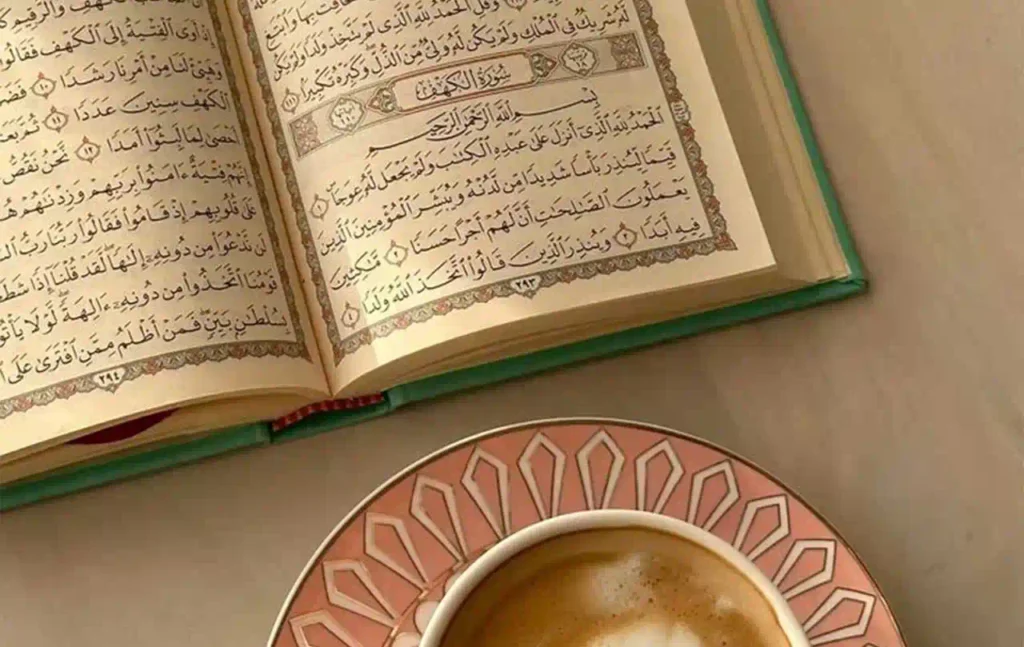 وَقُلِ ٱلْحَمْدُ لِلَّهِ ٱلَّذِى لَمْ يَتَّخِذْ وَلَدًا وَلَمْ يَكُن
لَّهُۥ شَرِيكٌ فِى ٱلْمُلْكِ وَلَمْ يَكُن لَّهُۥ وَلِىٌّ مِّنَ ٱلذُّلِّ وَكَبِّرْهُ تَكْبِيرًۢا ١١١
سُورَةُ الكَهْفِ
بِسْمِ ٱللَّهِ ٱلرَّحْمَٰنِ ٱلرَّحِيمِ
ٱلْحَمْدُ لِلَّهِ ٱلَّذِىٓ أَنزَلَ عَلَىٰ عَبْدِهِ ٱلْكِتَٰبَ وَلَمْ يَجْعَل لَّهُۥ عِوَجَاۜ ١
قَيِّمًا لِّيُنذِرَ بَأْسًا شَدِيدًا مِّن لَّدُنْهُ وَيُبَشِّرَ ٱلْمُؤْمِنِينَ ٱلَّذِينَ
يَعْمَلُونَ ٱلصَّٰلِحَٰتِ أَنَّ لَهُمْ أَجْرًا حَسَنًا ٢ مَّٰكِثِينَ
فِيهِ أَبَدًا ٣ وَيُنذِرَ ٱلَّذِينَ قَالُوا۟ ٱتَّخَذَ ٱللَّهُ وَلَدًا ٤
٢٩٣
إِذْ أَوَى ٱلْفِتْيَةُ إِلَى ٱلْكَهْفِ فَقَالُوا۟
وَهَيِّئْ لَنَا مِنْ أَمْرِنَا رَشَدًا ١٠
ٱلْكَهْفِ سِنِينَ عَدَدًا ١١ ثُمَّ
أَحْصَىٰ لِمَا لَبِثُوٓا۟ أَمَدًا ١٢ نَّحْنُ نَقُصُّ
إِنَّهُمْ فِتْيَةٌ ءَامَنُوا۟ بِرَبِّهِمْ وَزِدْنَٰهُمْ
عَلَىٰ قُلُوبِهِمْ إِذْ قَامُوا۟ فَقَالُوا۟ رَبُّنَا رَبُّ
لَن نَّدْعُوَا۟ مِن دُونِهِۦٓ إِلَٰهًا ۖ لَّقَدْ قُلْنَآ إِذًا
قَوْمُنَا ٱتَّخَذُوا۟ مِن دُونِهِۦٓ ءَالِهَةً ۖ لَّوْلَا
بِسُلْطَٰنٍۭ بَيِّنٍ ۖ فَمَنْ أَظْلَمُ مِمَّنِ ٱفْتَرَىٰ عَلَى
٢٩٤